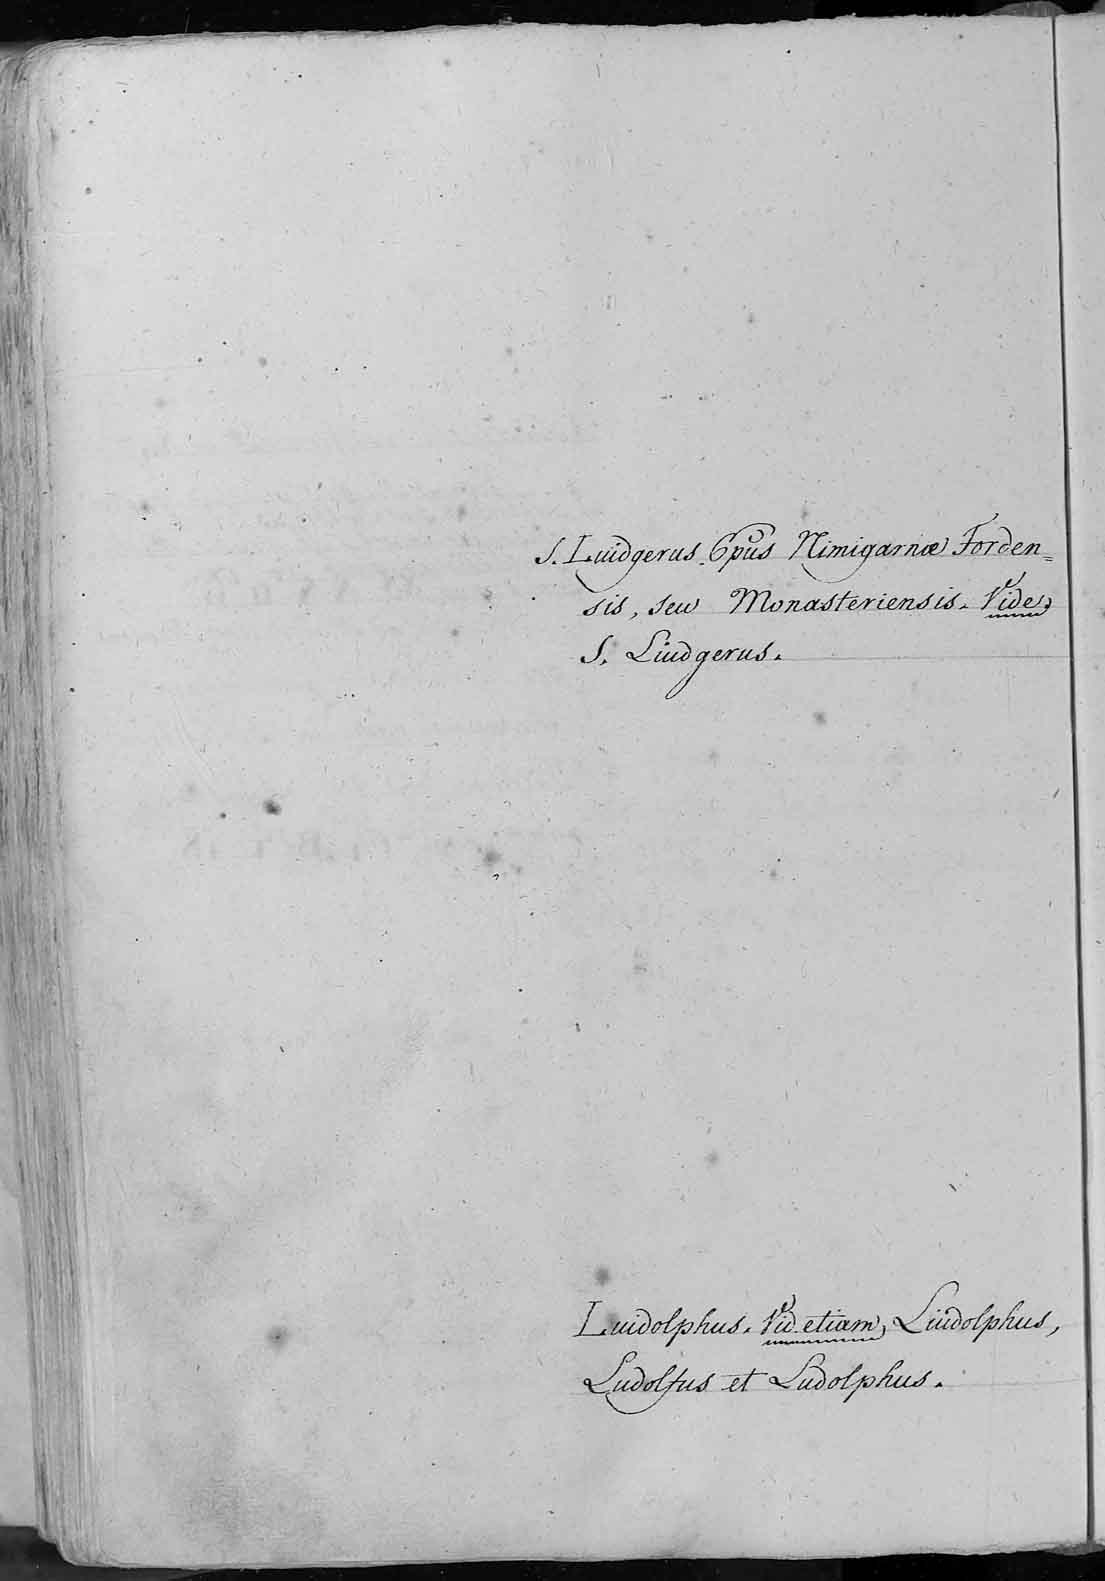 S. Luidgerus Epus Nimigarnæ Forden=
sis, seu Monasteriensis. Vide
S. Liudgerus.
Luidolphus. Vid etiam, Liudolphus,
Ludolfus et Ludolphus.